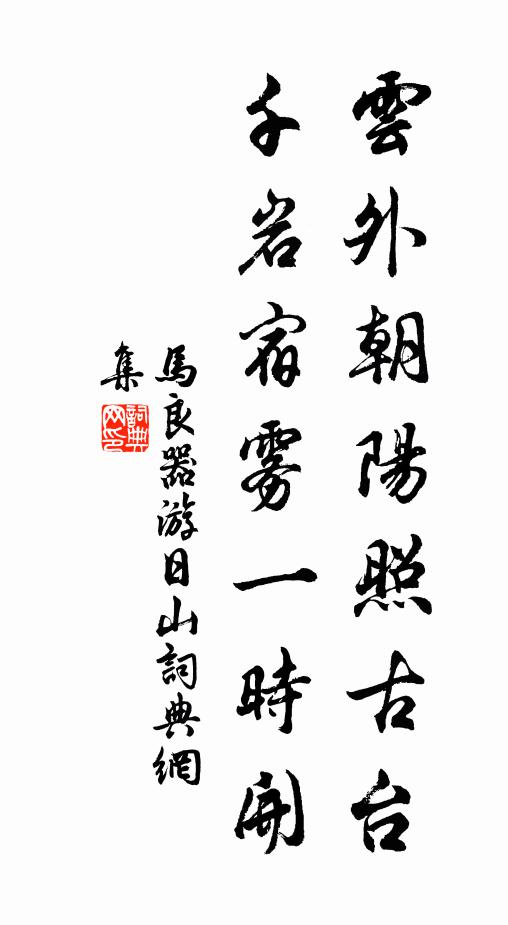 雲外朝陽照古台
千岩宿雾一時開
馬良器游日山詞典網
集
詞典
网印